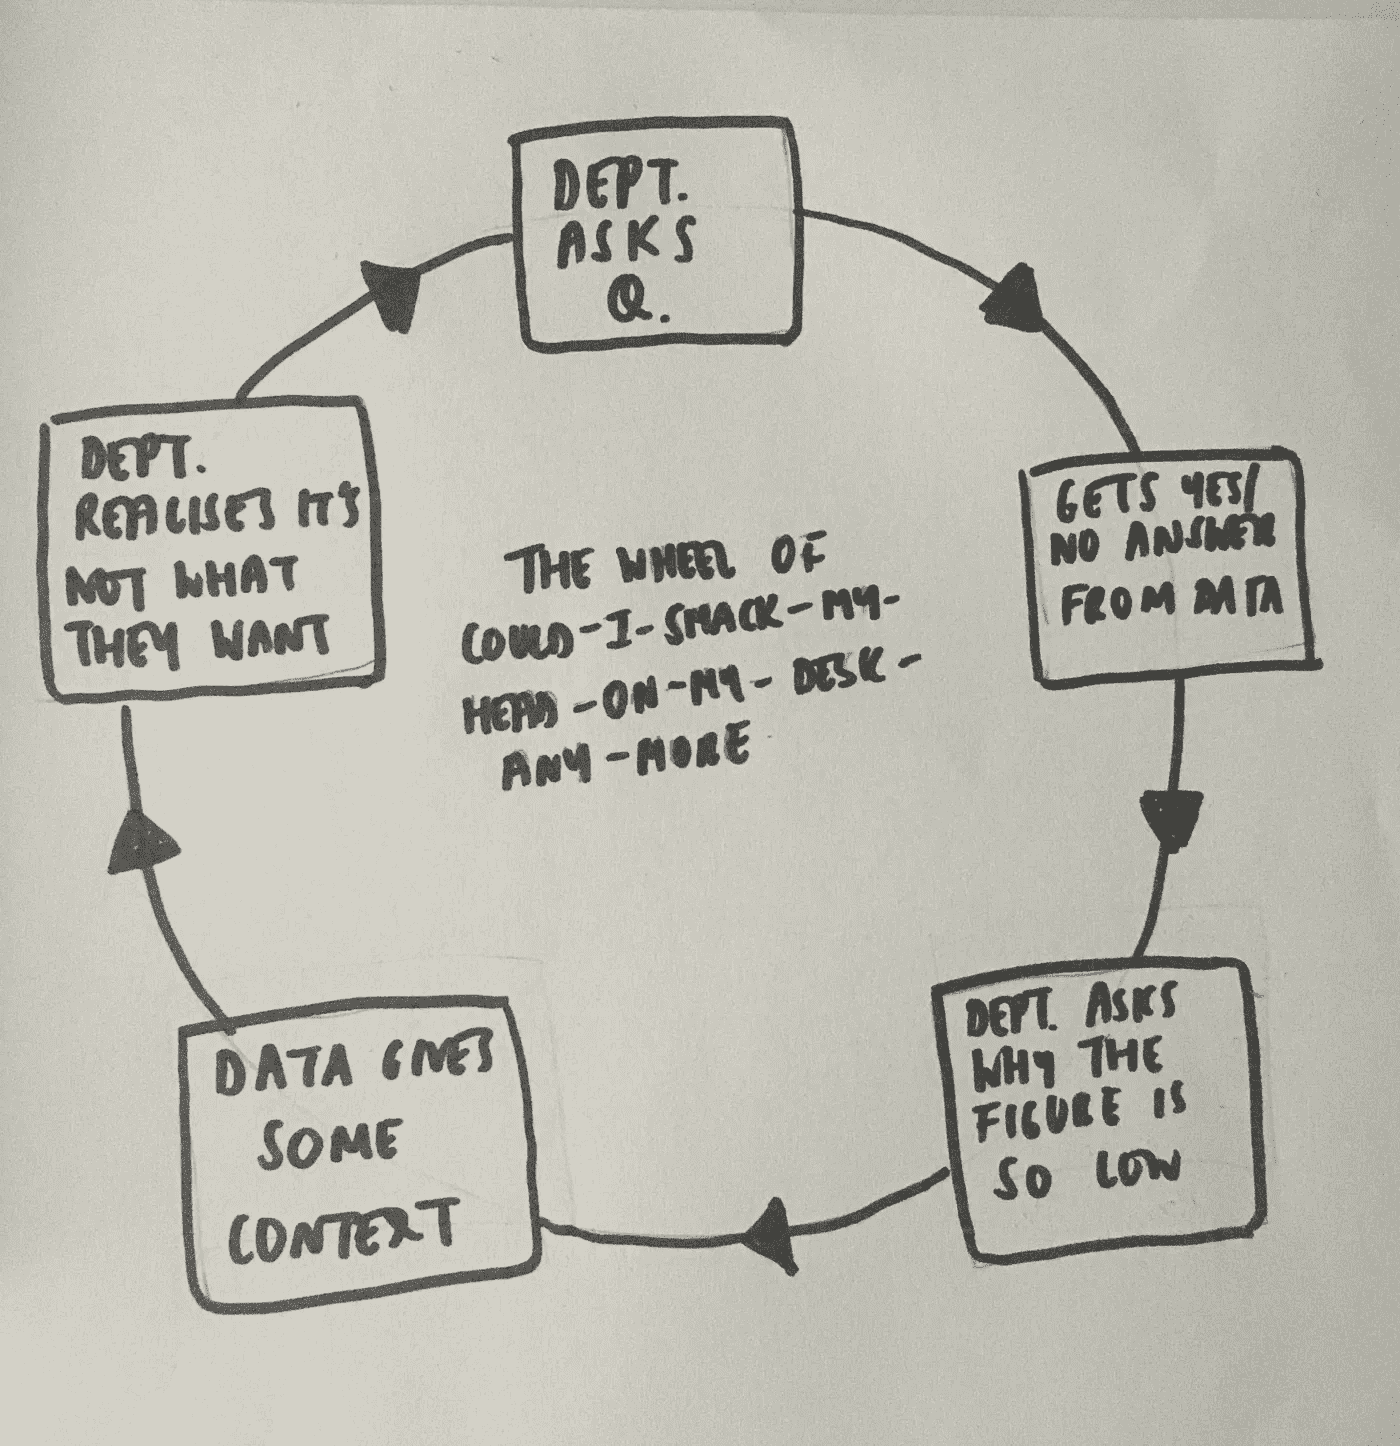 DEPT.
ASKS
Q.
GETS YES/
NO ANSWER
FROM DATA
DEPT. ASKS
WHY THE
FIGURE IS
SO LOW
DATA GIVES
SOME
CONTEXT
DEPT.
REALISES IT'S
NOT WHAT
THEY WANT
THE WHEEL OF
COULD-I-SMACK-MY-
HEAD-ON-MY-DESK-
ANY-MORE